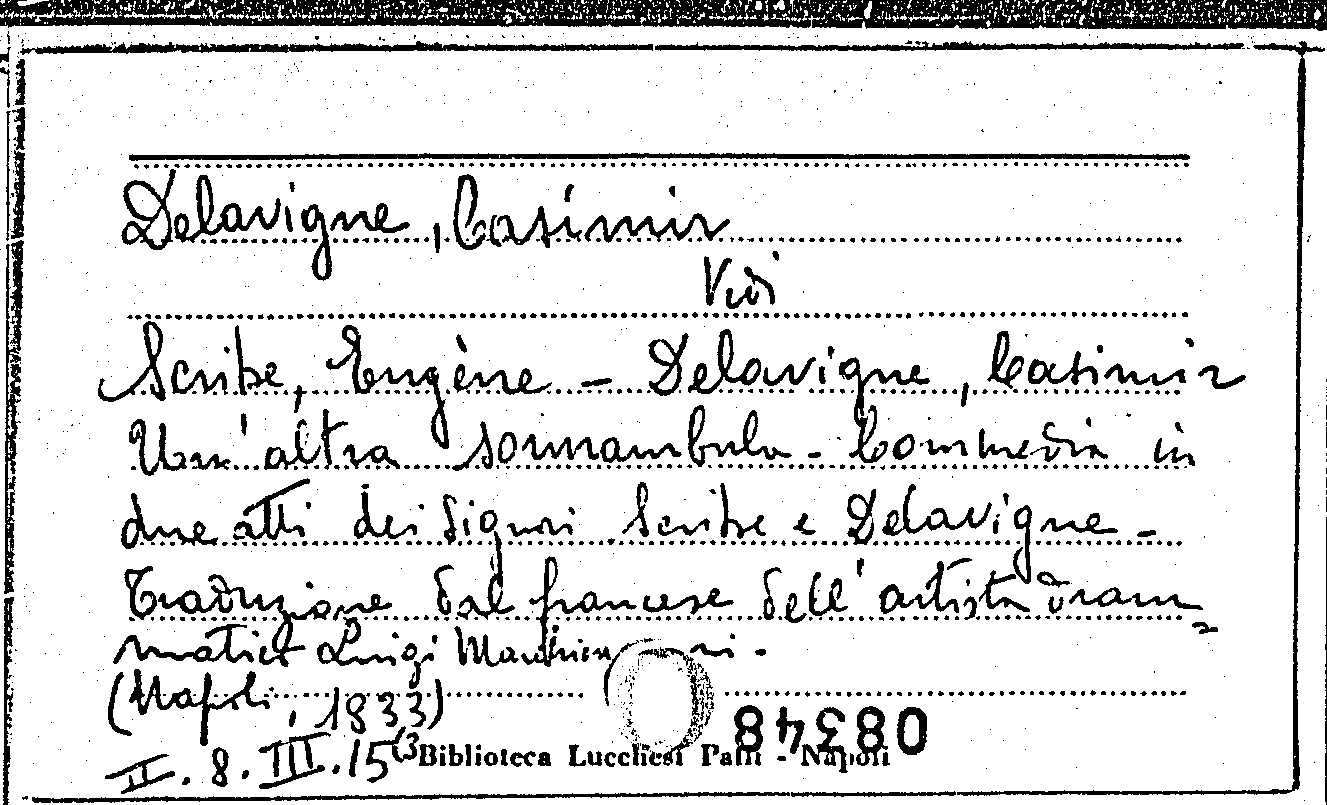 Delavigne, Casimir
Vedi
Scribe, Eugène - Delavigne, Casimir
Un'altra sonnambula - Commedia in
due atti dei signori Scribe e Delavigne -
Traduzione dal francese dell'artista dram=
matico Luigi
(Napoli, 1833)
II. 8. III. 15(3
Biblioteca Lucchesi Palli - Napoli
08348